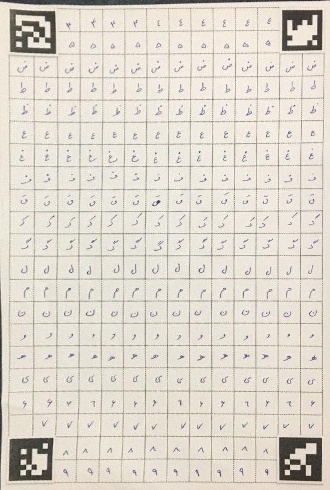 ٤ ٤ ٤ ٤ ٤ ٤ ۴ ۴ ۴ ۴
۵ ۵ ۵ ۵ ۵ ۵ ۵ ۵ ۵ ۵
ض ض ض ض ض ض ض ض ض ض ض ض ض ض
ط ط ط ط ط ط ط ط ط ط ط ط ط ط
ظ ظ ظ ظ ظ ظ ظ ظ ظ ظ ظ ظ ظ ظ
ع ع ع ع ع ع ع ع ع ع ع ع ع ع
غ غ غ غ غ غ غ غ غ غ غ غ غ غ
ف ف ف ف ف ف ف ف ف ف ف ف ف ف
ق ق ق ق ق ق ق ق ق ق ق ق ق ق
ک ک ک ک ک ک ک ک ک ک ک ک ک ک
گ گ گ گ گ گ گ گ گ گ گ گ گ گ
ل ل ل ل ل ل ل ل ل ل ل ل ل ل
م م م م م م م م م م م م م م
ن ن ن ن ن ن ن ن ن ن ن ن ن ن
و و و و و و و و و و و و و و
ه ه ه ه ه ه ه ه ه ه ه ه ه ه
ی ی ی ی ی ی ی ی ی ی ی ی ی ی
۶ ۶ ۶ ۶ ۶ ۶ ۶ ۶ ۶ ۶ ۶ ۶ ۶ ۶
۷ ۷ ۷ ۷ ۷ ۷ ۷ ۷ ۷ ۷ ۷ ۷ ۷
۸ ۸ ۸ ۸ ۸ ۸ ۸ ۸ ۸ ۸
۹ ۹ ۹ ۹ ۹ ۹ ۹ ۹ ۹ ۹